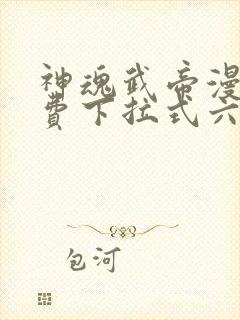 神魂武帝漫
費下拉式六
包河